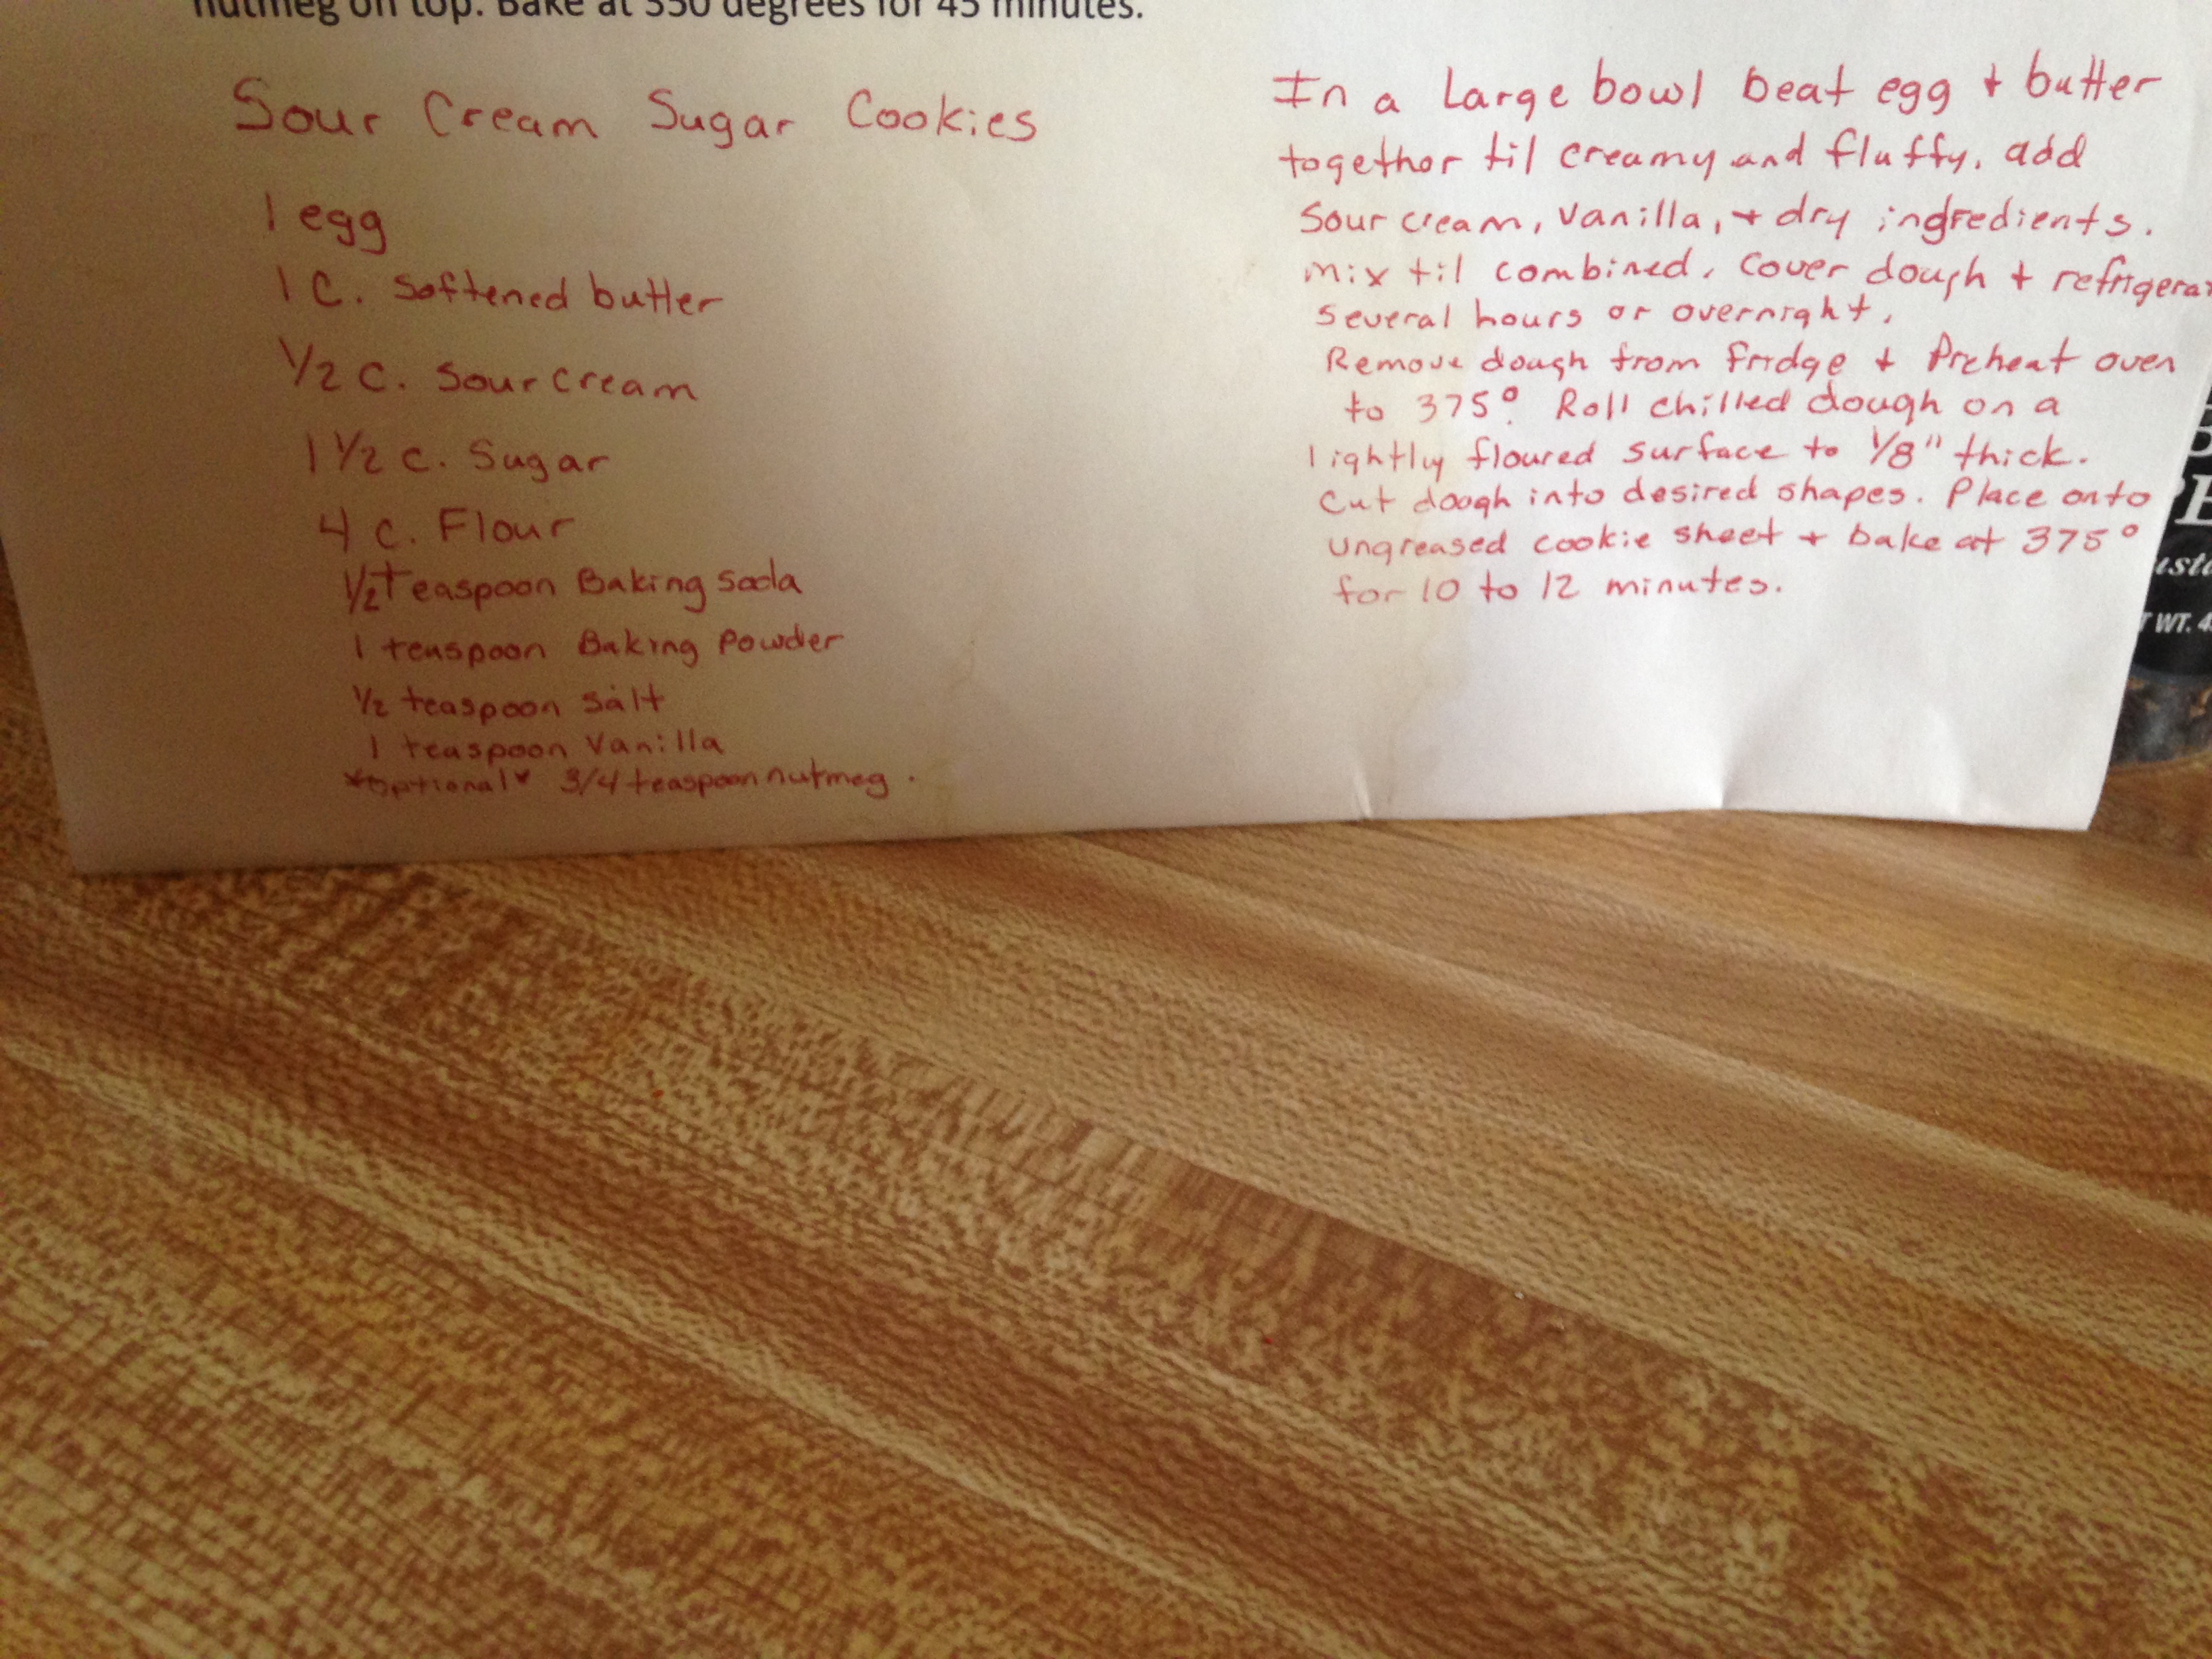 nutmeg on top. Bake at 350 degrees for 45 minutes.
Sour Cream Sugar Cookies
1 egg
1 C. softened butter
1/2 C. sour cream
1 1/2 c. Sugar
4 c. Flour
1/2 Teaspoon Baking soda
1 teaspoon Baking Powder
1/2 teaspoon salt
1 teaspoon Vanilla
*optional* 3/4 teaspoon nutmeg.
In a Large bowl beat egg + butter
together til creamy and fluffy. add
Sour cream, vanilla, + dry ingredients.
mix til combined. Cover dough + refrigera
several hours or overnight.
Remove dough from fridge + Preheat oven
to 375°. Roll chilled dough on a
lightly floured surface to 1/8" thick.
Cut dough into desired shapes. Place onto
ungreased cookie sheet + bake at 375°
for 10 to 12 minutes.
WT. 4